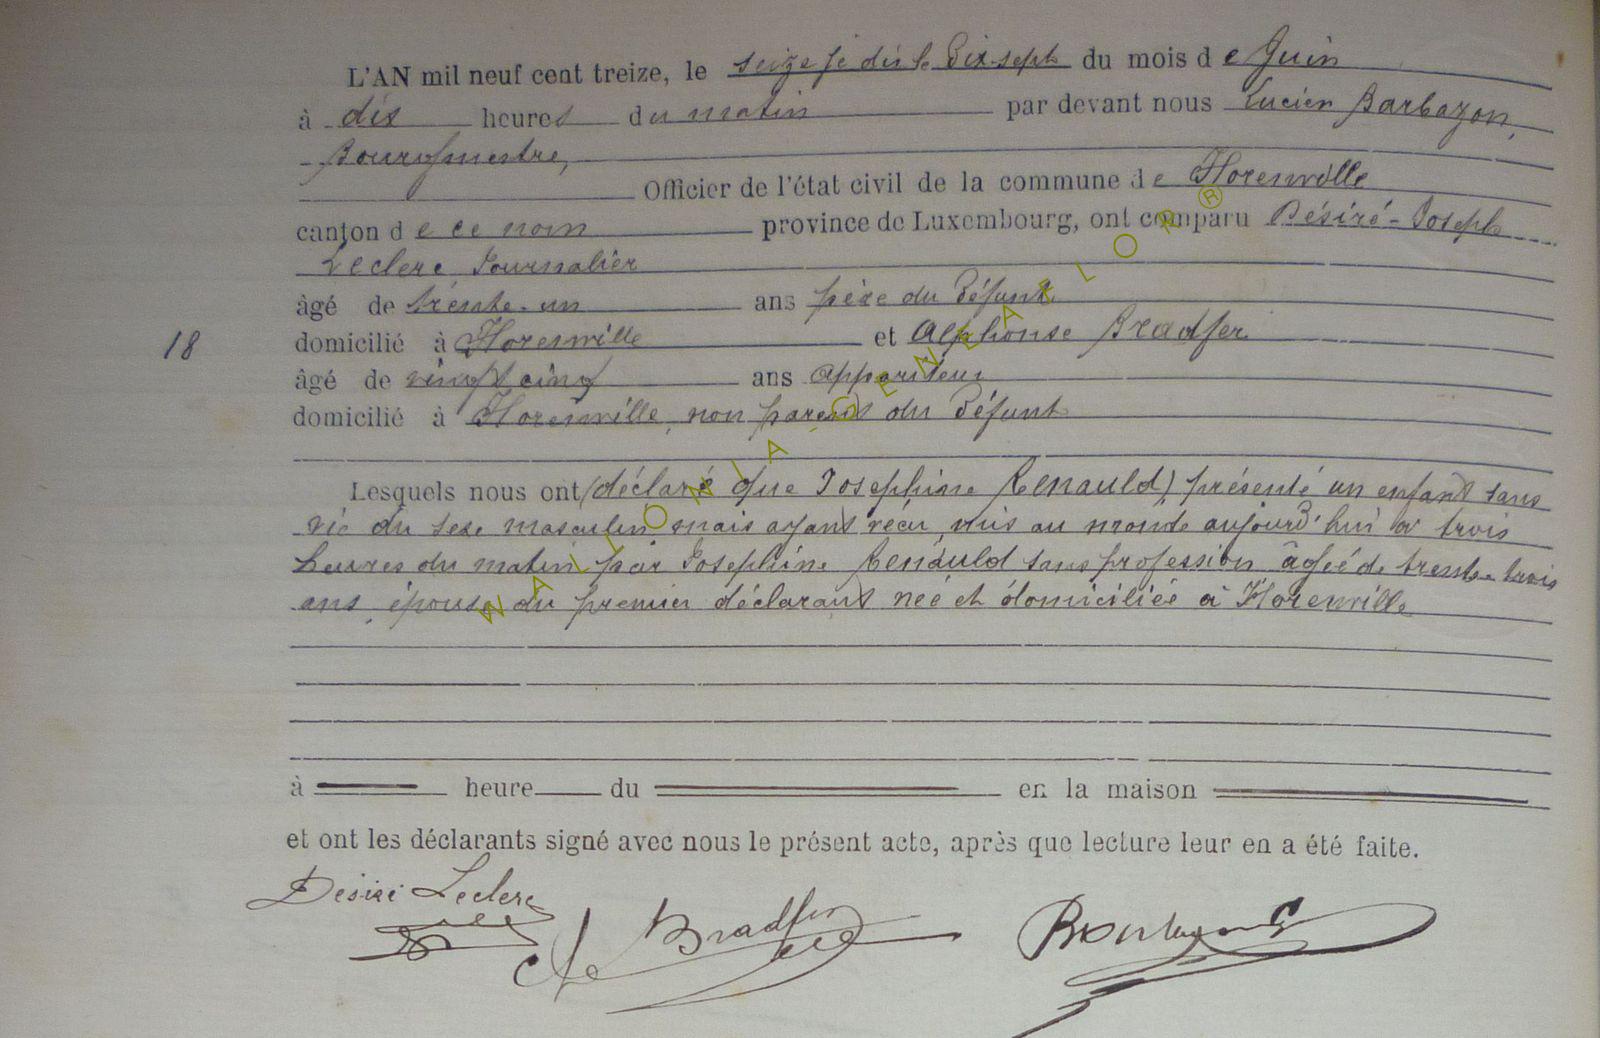 L'AN mil neuf cent treize, le seize je dis le Dix-sept du mois de Juin
à dix heures du matin par devant nous Lucien Barbazon,
Bourgmestre,
Officier de l'état civil de la commune de Florenville
canton de ce nom province de Luxembourg, ont comparu Désiré-Joseph
Leclerc Journalier
âgé de trente-un ans père du Défunt
18
domicilié à Florenville et Alphonse Bradfer
âgé de vingt cinq ans appariteur
domicilié à Florenville, non parent du Défunt
Lesquels nous ont (déclaré que Josephine Renauld) présenté un enfant sans
vie du sexe masculin mais ayant vécu, mis au monde aujourd'hui à trois
heures du matin par Josephine Renauld sans profession âgée de trente-trois
ans, épouse du premier déclarant née et domiciliée à Florenville
à heure du en la maison
et ont les déclarants signé avec nous le présent acte, après que lecture leur en a été faite.
Désiré Leclerc
Bradfer
WALLONIA.GENEAKLOR®